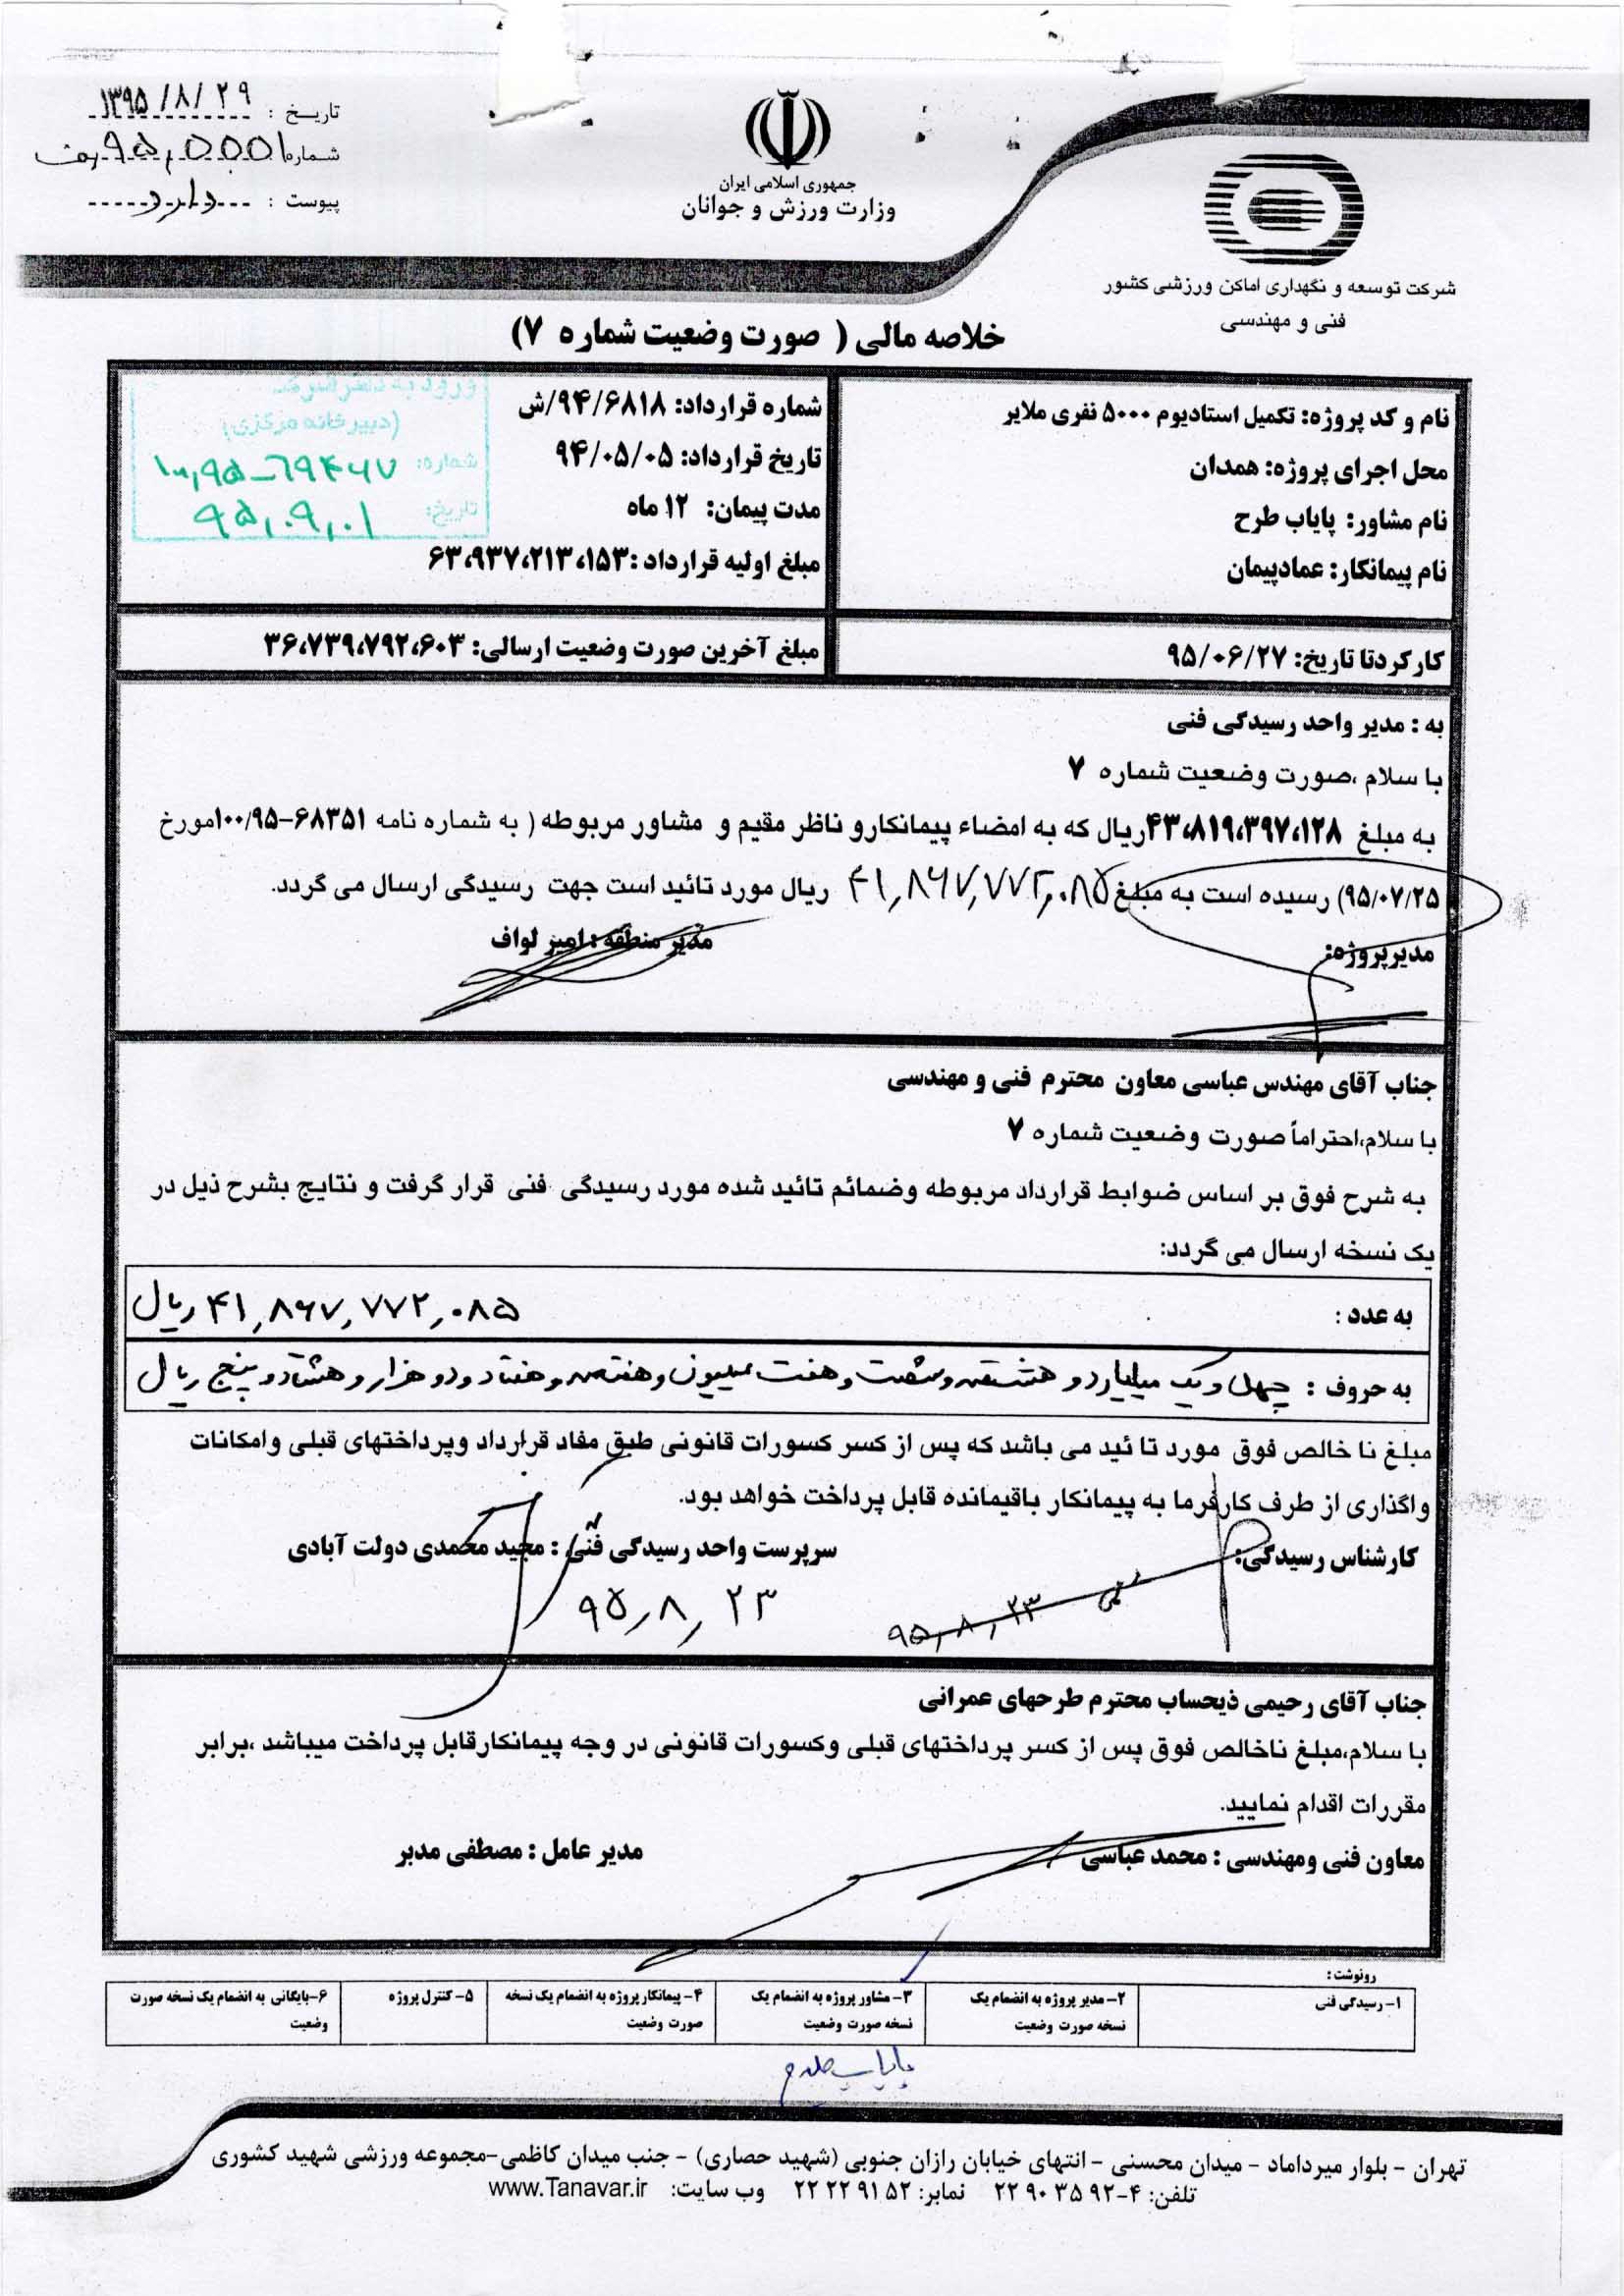 تاریخ : ۱۳۹۵/۸/۲۹
شماره ۹۵٫۵۵۵۱
پیوست : دارد
جمهوری اسلامی ایران
وزارت ورزش و جوانان
شرکت توسعه و نگهداری اماکن ورزشی کشور
فنی و مهندسی
خلاصه مالی ( صورت وضعیت شماره ۷)
نام و کد پروژه: تکمیل استادیوم ۵۰۰۰ نفری ملایر
محل اجرای پروژه: همدان
نام مشاور: پایاب طرح
نام پیمانکار: عمادپیمان
شماره قرارداد: ۹۴/۶۸۱۸/ش
تاریخ قرارداد: ۹۴/۰۵/۰۵
مدت پیمان: ۱۲ ماه
مبلغ اولیه قرارداد :۶۳،۹۳۷،۲۱۳،۱۵۳
ورود به دفتر
(دبیرخانه مرکزی)
شماره: ۱۰۰٫۹۵-۶۹۴۶۷
تاریخ: ۹۵٫۰۹٫۰۱
کارکردتا تاریخ: ۹۵/۰۶/۲۷
مبلغ آخرین صورت وضعیت ارسالی: ۳۶،۷۳۹،۷۹۲،۶۰۳
به : مدیر واحد رسیدگی فنی
با سلام ،صورت وضعیت شماره ۷
به مبلغ ۴۳،۸۱۹،۳۹۷،۱۲۸ریال که به امضاء پیمانکارو ناظر مقیم و مشاور مربوطه ( به شماره نامه ۶۸۳۵۱-۱۰۰/۹۵مورخ
۹۵/۰۷/۲۵) رسیده است به مبلغ ۴۱٫۸۶۷٫۷۷۲٫۰۸۵ ریال مورد تائید است جهت رسیدگی ارسال می گردد.
مدیرپروژه: مدیر منطقه : امیر لواف
جناب آقای مهندس عباسی معاون محترم فنی و مهندسی
با سلام،احتراماً صورت وضعیت شماره ۷
به شرح فوق بر اساس ضوابط قرارداد مربوطه وضمائم تائید شده مورد رسیدگی فنی قرار گرفت و نتایج بشرح ذیل در
یک نسخه ارسال می گردد:
به عدد : ۴۱٫۸۶۷٫۷۷۲٫۰۸۵ ریال
به حروف : چهل و یک میلیارد و هشتصد و شصت و هفت میلیون و هفتصد و هفتاد و دو هزار و هشتاد و پنج ریال
مبلغ نا خالص فوق مورد تا ئید می باشد که پس از کسر کسورات قانونی طبق مفاد قرارداد وپرداختهای قبلی وامکانات
واگذاری از طرف کارفرما به پیمانکار باقیمانده قابل پرداخت خواهد بود.
کارشناس رسیدگی: سرپرست واحد رسیدگی فنی : مجید محمدی دولت آبادی
۹۵٫۸٫۲۳ ۹۵٫۸٫۲۳
جناب آقای رحیمی ذیحساب محترم طرحهای عمرانی
با سلام،مبلغ ناخالص فوق پس از کسر پرداختهای قبلی وکسورات قانونی در وجه پیمانکارقابل پرداخت میباشد ،برابر
مقررات اقدام نمایید.
معاون فنی ومهندسی : محمد عباسی مدیر عامل : مصطفی مدبر
رونوشت :
۱- رسیدگی فنی
۲- مدیر پروژه به انضمام یک
نسخه صورت وضعیت
۳- مشاور پروژه به انضمام یک
نسخه صورت وضعیت
۴- پیمانکار پروژه به انضمام یک نسخه
صورت وضعیت
۵- کنترل پروژه
۶-بایگانی به انضمام یک نسخه صورت
وضعیت
پایاب طرح
تهران - بلوار میرداماد - میدان محسنی - انتهای خیابان رازان جنوبی (شهید حصاری) - جنب میدان کاظمی-مجموعه ورزشی شهید کشوری
تلفن: ۴-۹۲ ۳۵ ۹۰ ۲۲ نمابر: ۵۲ ۹۱ ۲۲ ۲۲ وب سایت: www.Tanavar.ir